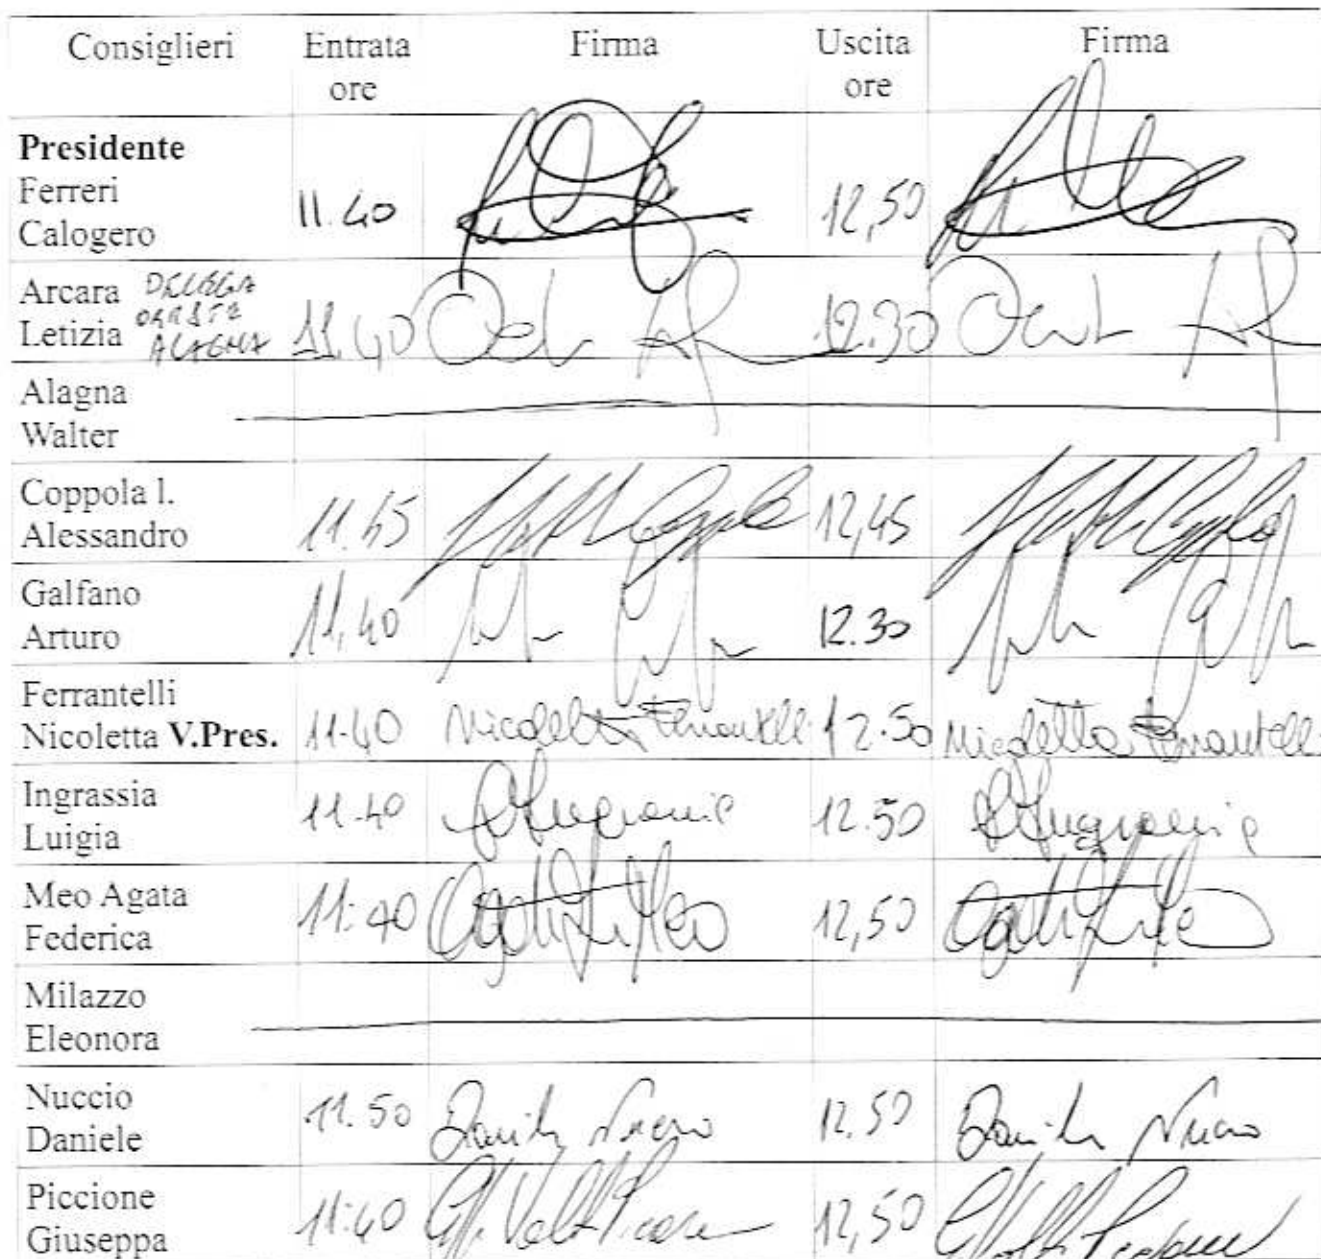 Consiglieri Entrata ore Firma Uscita ore Firma
Presidente
Ferreri
Calogero 11.40 12,50
Arcara DELEGA
Letizia ORESTE
ALAGNA 11.40 12.30
Alagna
Walter
Coppola l.
Alessandro 11.45 12,45
Galfano
Arturo 11,40 12.30
Ferrantelli
Nicoletta V.Pres. 11.40 Nicoletta Ferrantelli 12.50 Nicoletta Ferrantelli
Ingrassia
Luigia 11.40 12.50
Meo Agata
Federica 11:40 12,50
Milazzo
Eleonora
Nuccio
Daniele 11.50 Daniele Nuccio 12.50 Daniele Nuccio
Piccione
Giuseppa 11:40 12,50